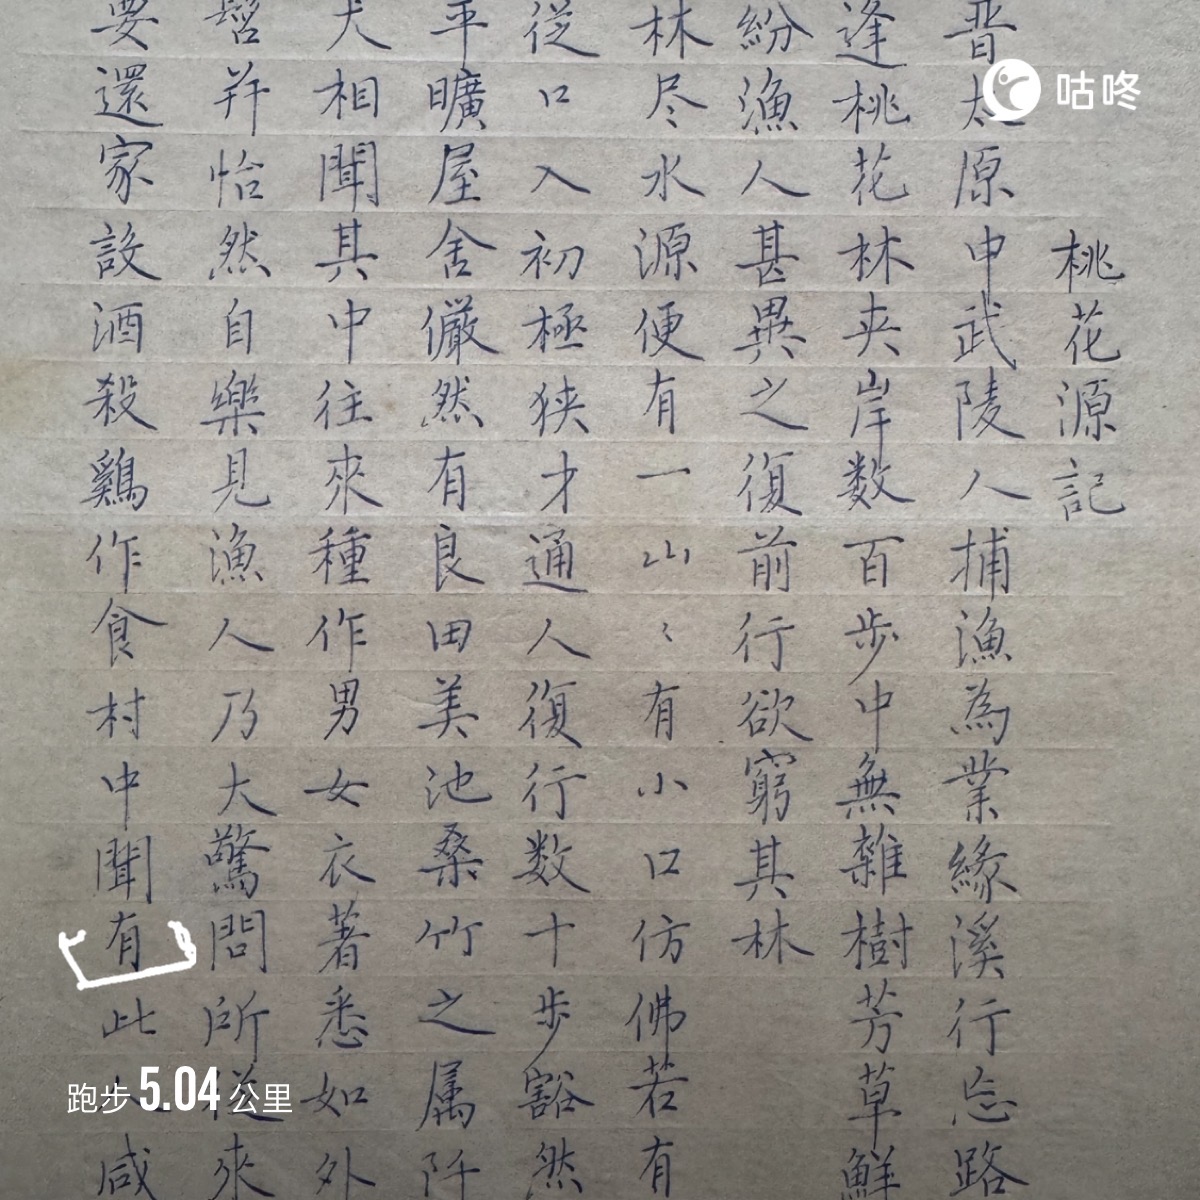 咕咚
桃花源記
晋太原中武陵人捕漁為業緣溪行忘路
逢桃花林夹岸数百步中無雜樹芳草鮮
紛漁人甚異之復前行欲窮其林
林尽水源便有一山〻有小口仿佛若有
従口入初極狭才通人復行数十步豁然
平曠屋舍儼然有良田美池桑竹之属阡
犬相聞其中往來種作男女衣著悉如外
髫并怡然自樂見漁人乃大驚問所従來
要還家設酒殺鷄作食村中聞有此人咸
跑步 5.04 公里